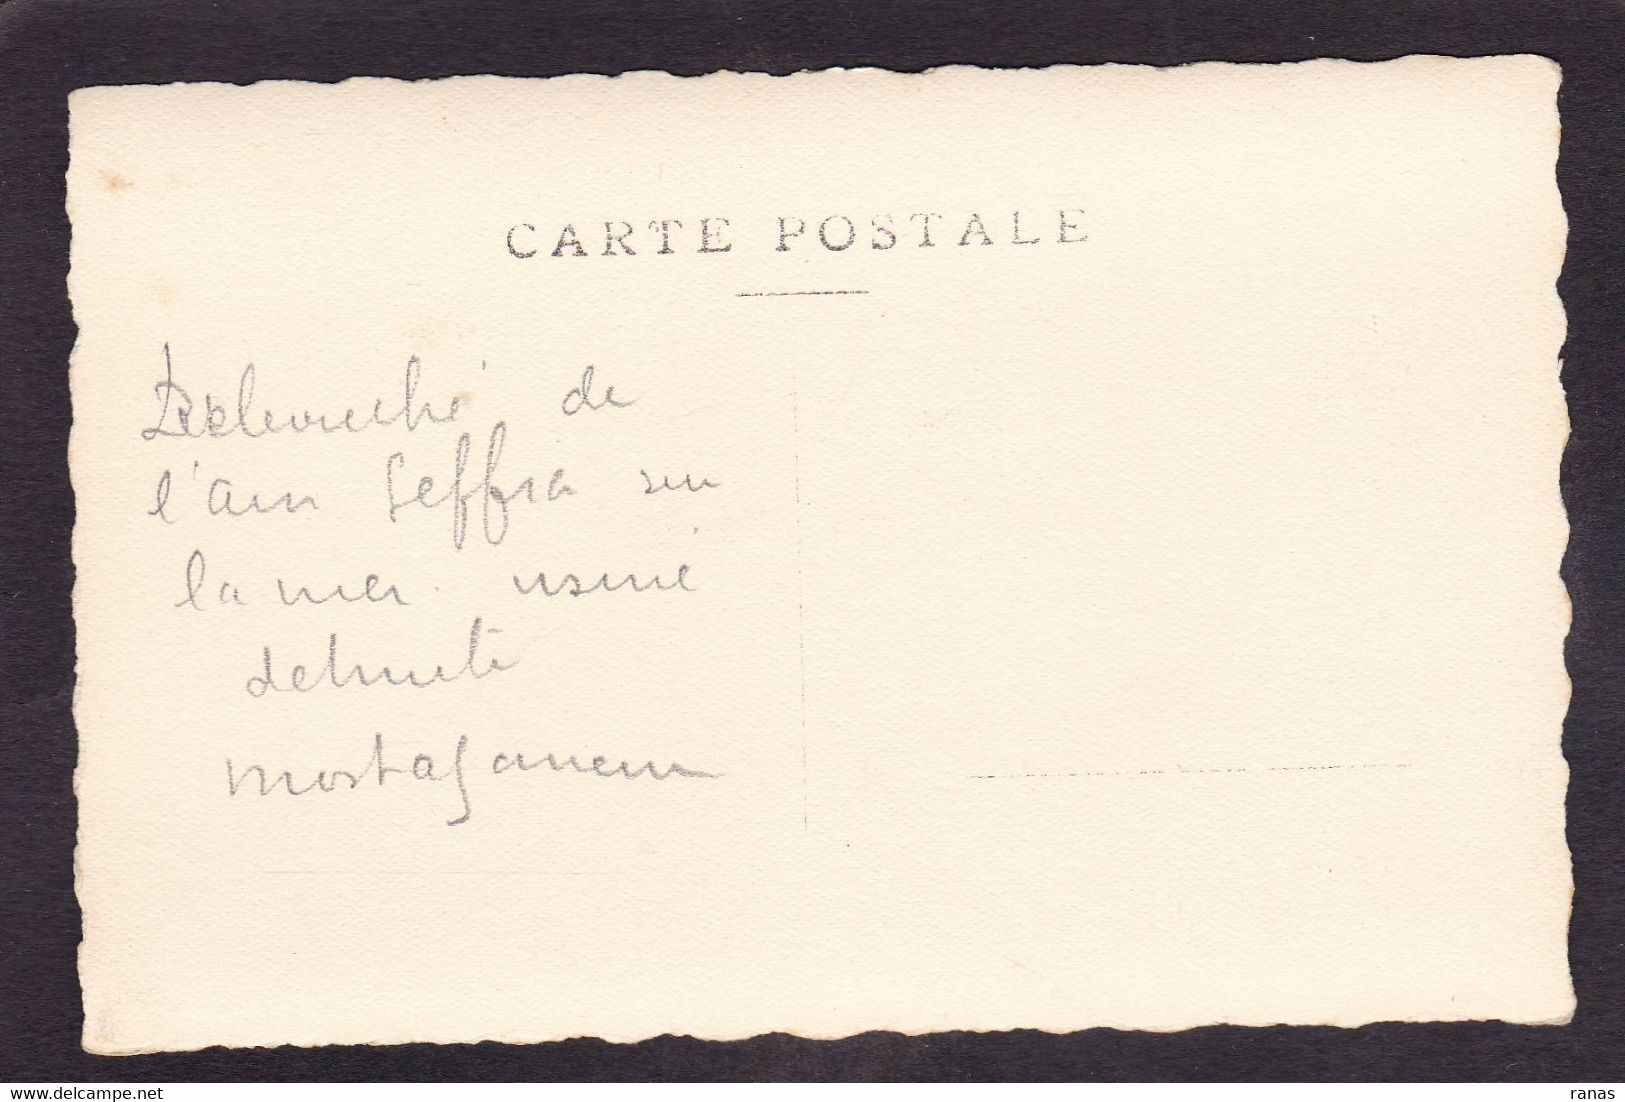 CARTE POSTALE
de
l'Ain Seffra sur
la mer. usine
detruite
Mostaganem
www.delcampe.net
ranas